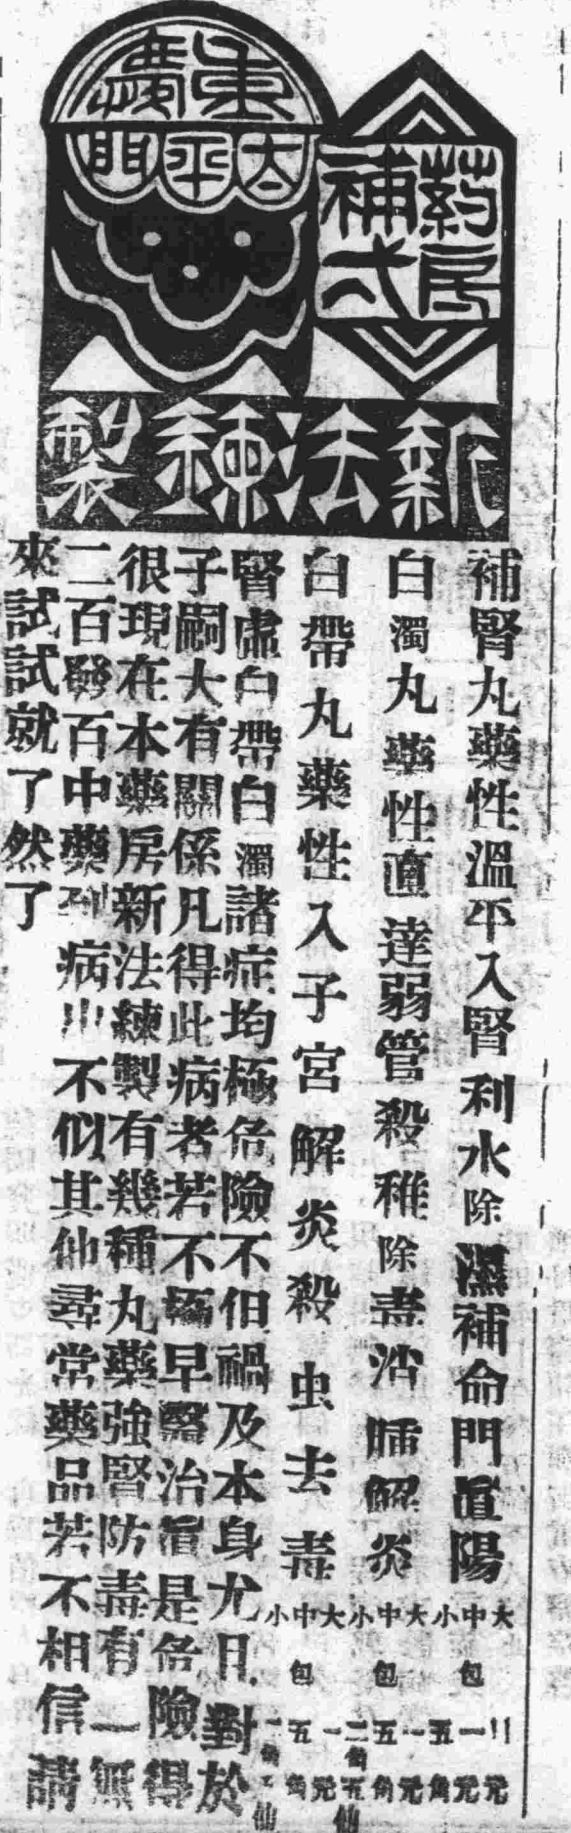 廣東
太平門
藥房
補天
新法鍊製
補腎丸藥性溫平入腎利水除濕補命門眞陽
大中小包
二元
一元
五角
白濁丸藥性直達弱管殺稚除毒沾腫解炎
大中小包
一元
五角
二角五仙
白帶丸藥性入子宮解炎殺虫去毒
大中小包
一元
五角
二角五仙
腎虛白帶白濁諸症均極危險不但禍及本身尤且對於
子嗣大有關係凡得此病者若不極早醫治眞是危險得
很現在本藥房新法練製有幾種丸藥強腎防毒有一無
二百發百中藥到病出不似其他尋常藥品若不相信請
來試試就了然了